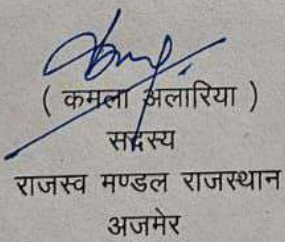 ( कमला अलारिया )
सदस्य
राजस्व मण्डल राजस्थान
अजमेर